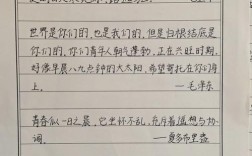 世界是你们的,也是我们的,但是归根结底是
你们的,你们青年人朝气蓬勃,正在兴旺时期,
好像早晨八九点钟的太阳,希望寄托在你们身
上。
—毛泽东
青春似一日之晨,它坐怀不乱,充满着遐想与协
调。
—夏多布里盎